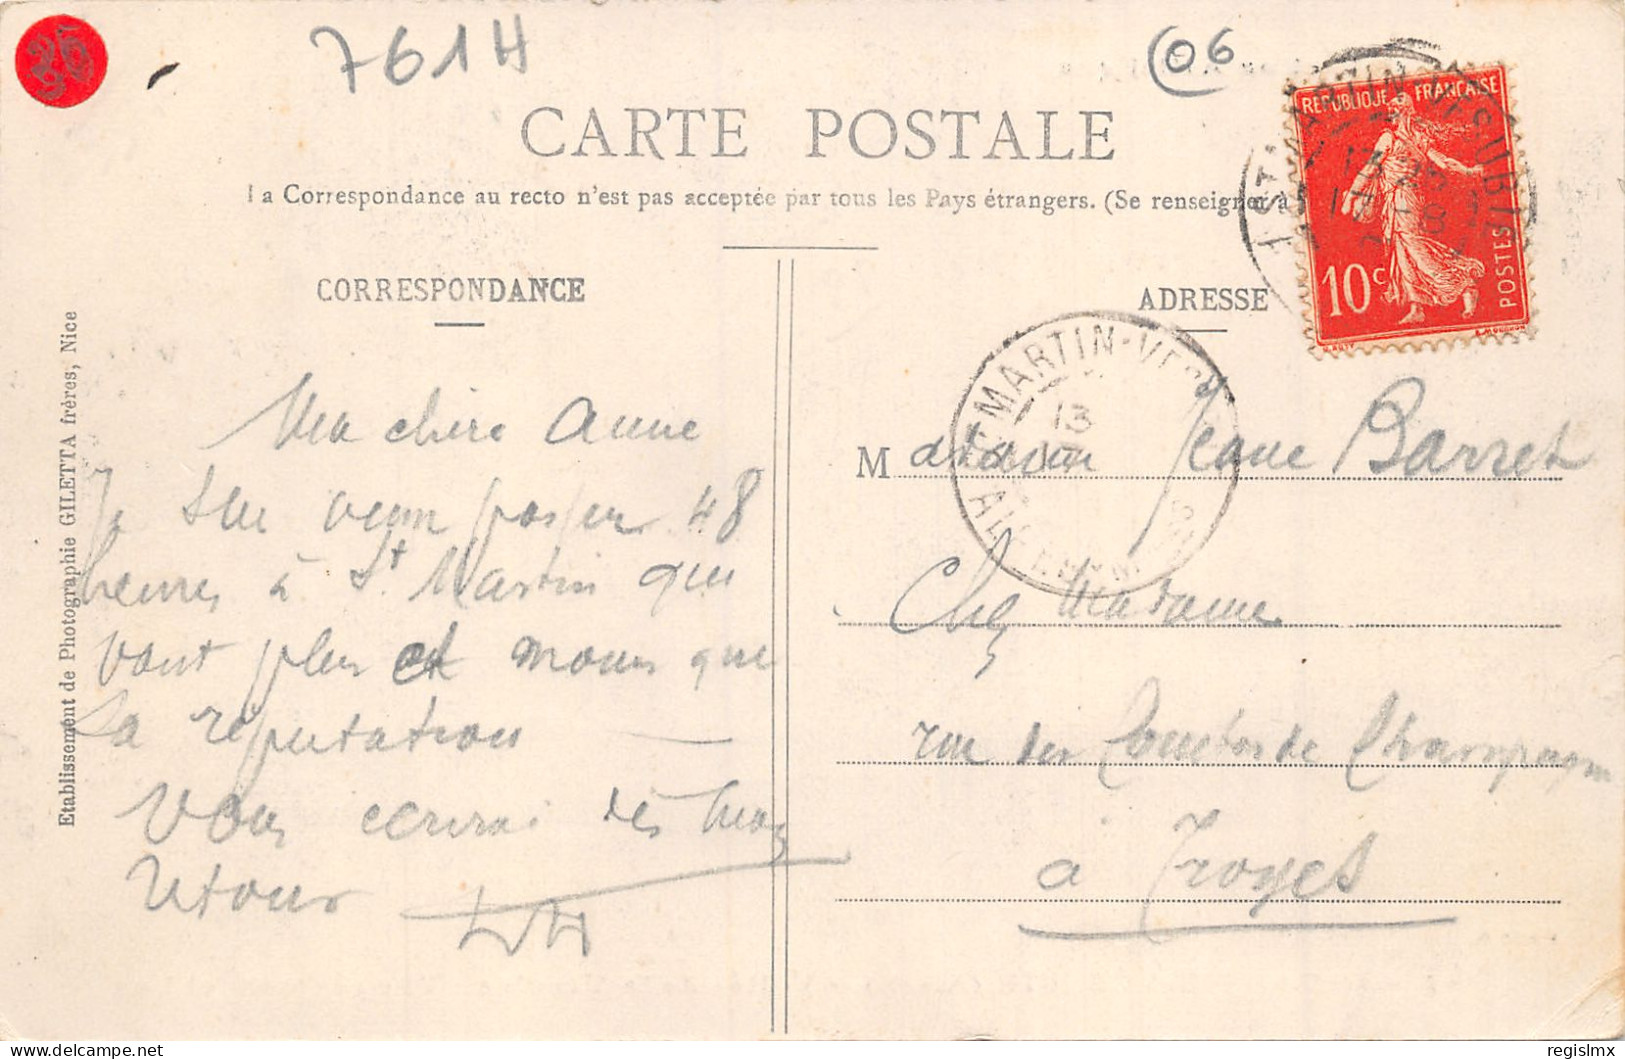 7614
06
CARTE POSTALE
La Correspondance au recto n'est pas acceptée par tous les Pays étrangers. (Se renseigner à
REPUBLIQUE FRANCAISE
10c
POSTES
CORRESPONDANCE
ADRESSE
Etablissement de Photographie GILETTA frères, Nice
MARTIN-VES
13
Ma chère Anne
Je suis venu passer 48
heures à St Martin qui
vaut plus et moins que
sa réputation —
Vous écrirai dès mon
retour
Madame Jeane Barret
Chez Madame
rue des Comtes de Champagne
à Troyes
regislmx